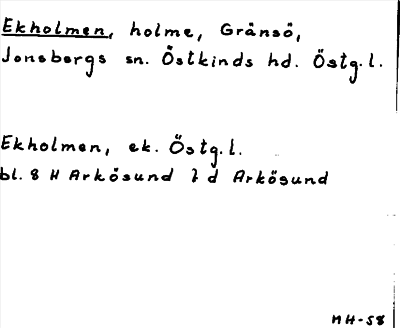 Ekholmen, holme, Gränsö,
Jonsbergs sn. Östkinds hd. Östg.l.
Ekholmen, ek. Östg.l.
bl. 8 H Arkösund 1 d Arkösund
MH-58